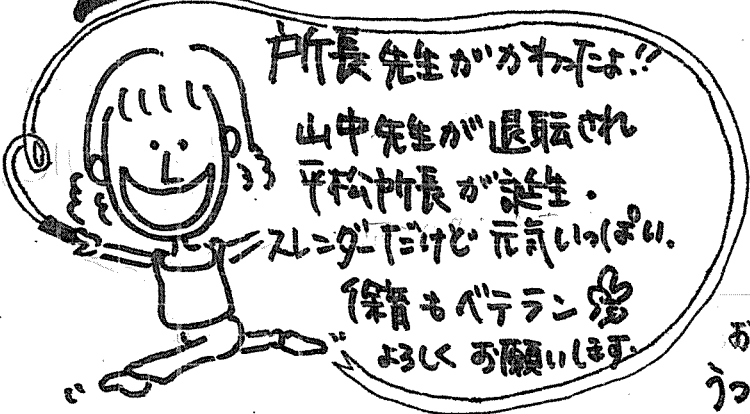 所長先生がかわったよ!!
山中先生が退転され
平松所長が誕生.
スレンダーだけど 元気いっぱい.
保育もベテラン
よろしく お願いします.
お
うつ